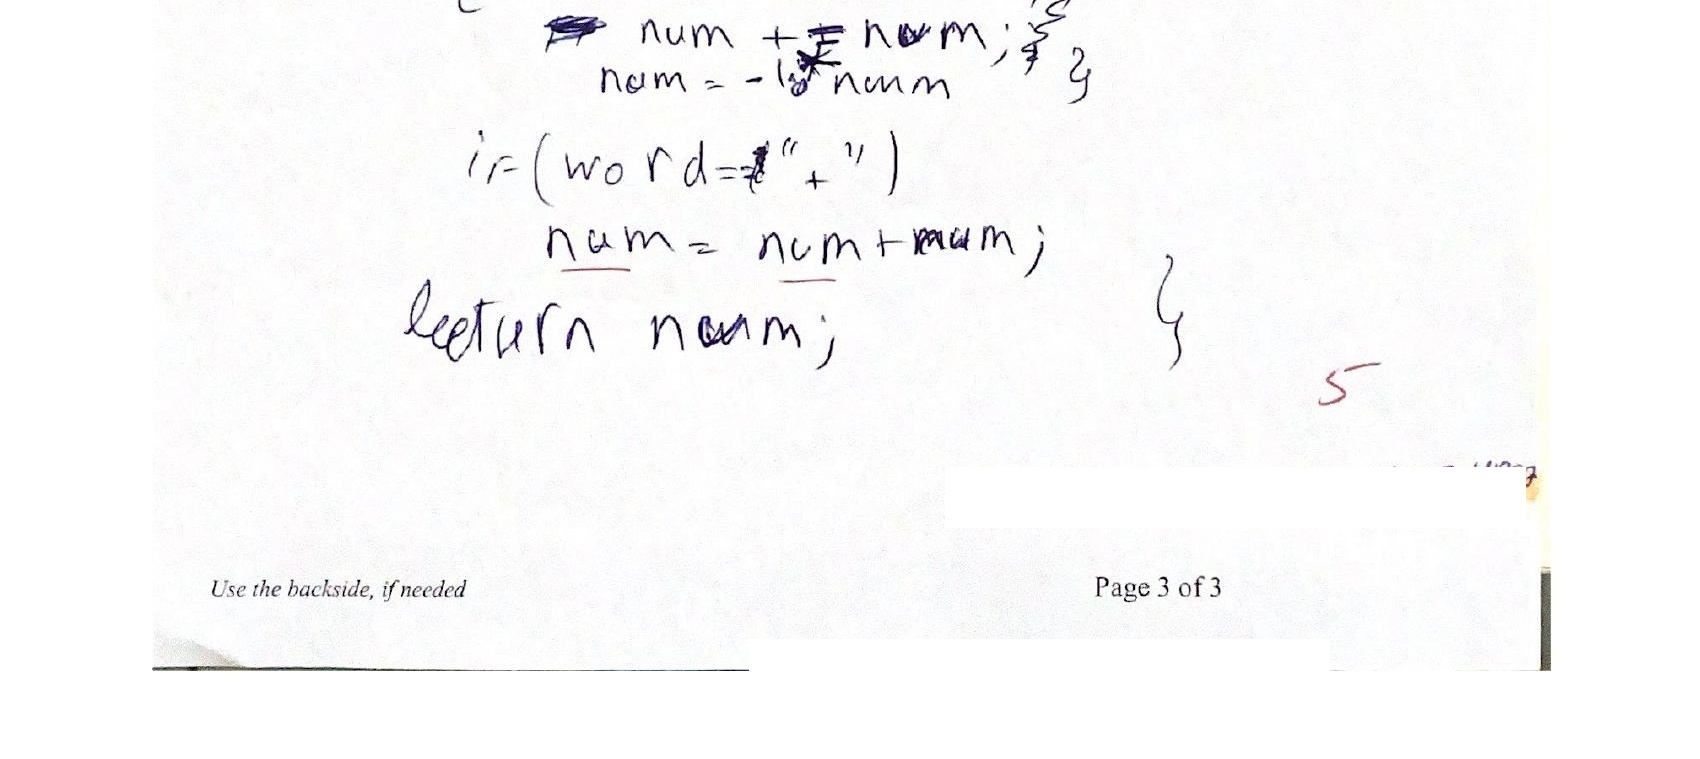 num += num; }
num = -1 * num }
if (word == "+")
num = num + num;
return num; }
5
Use the backside, if needed
Page 3 of 3